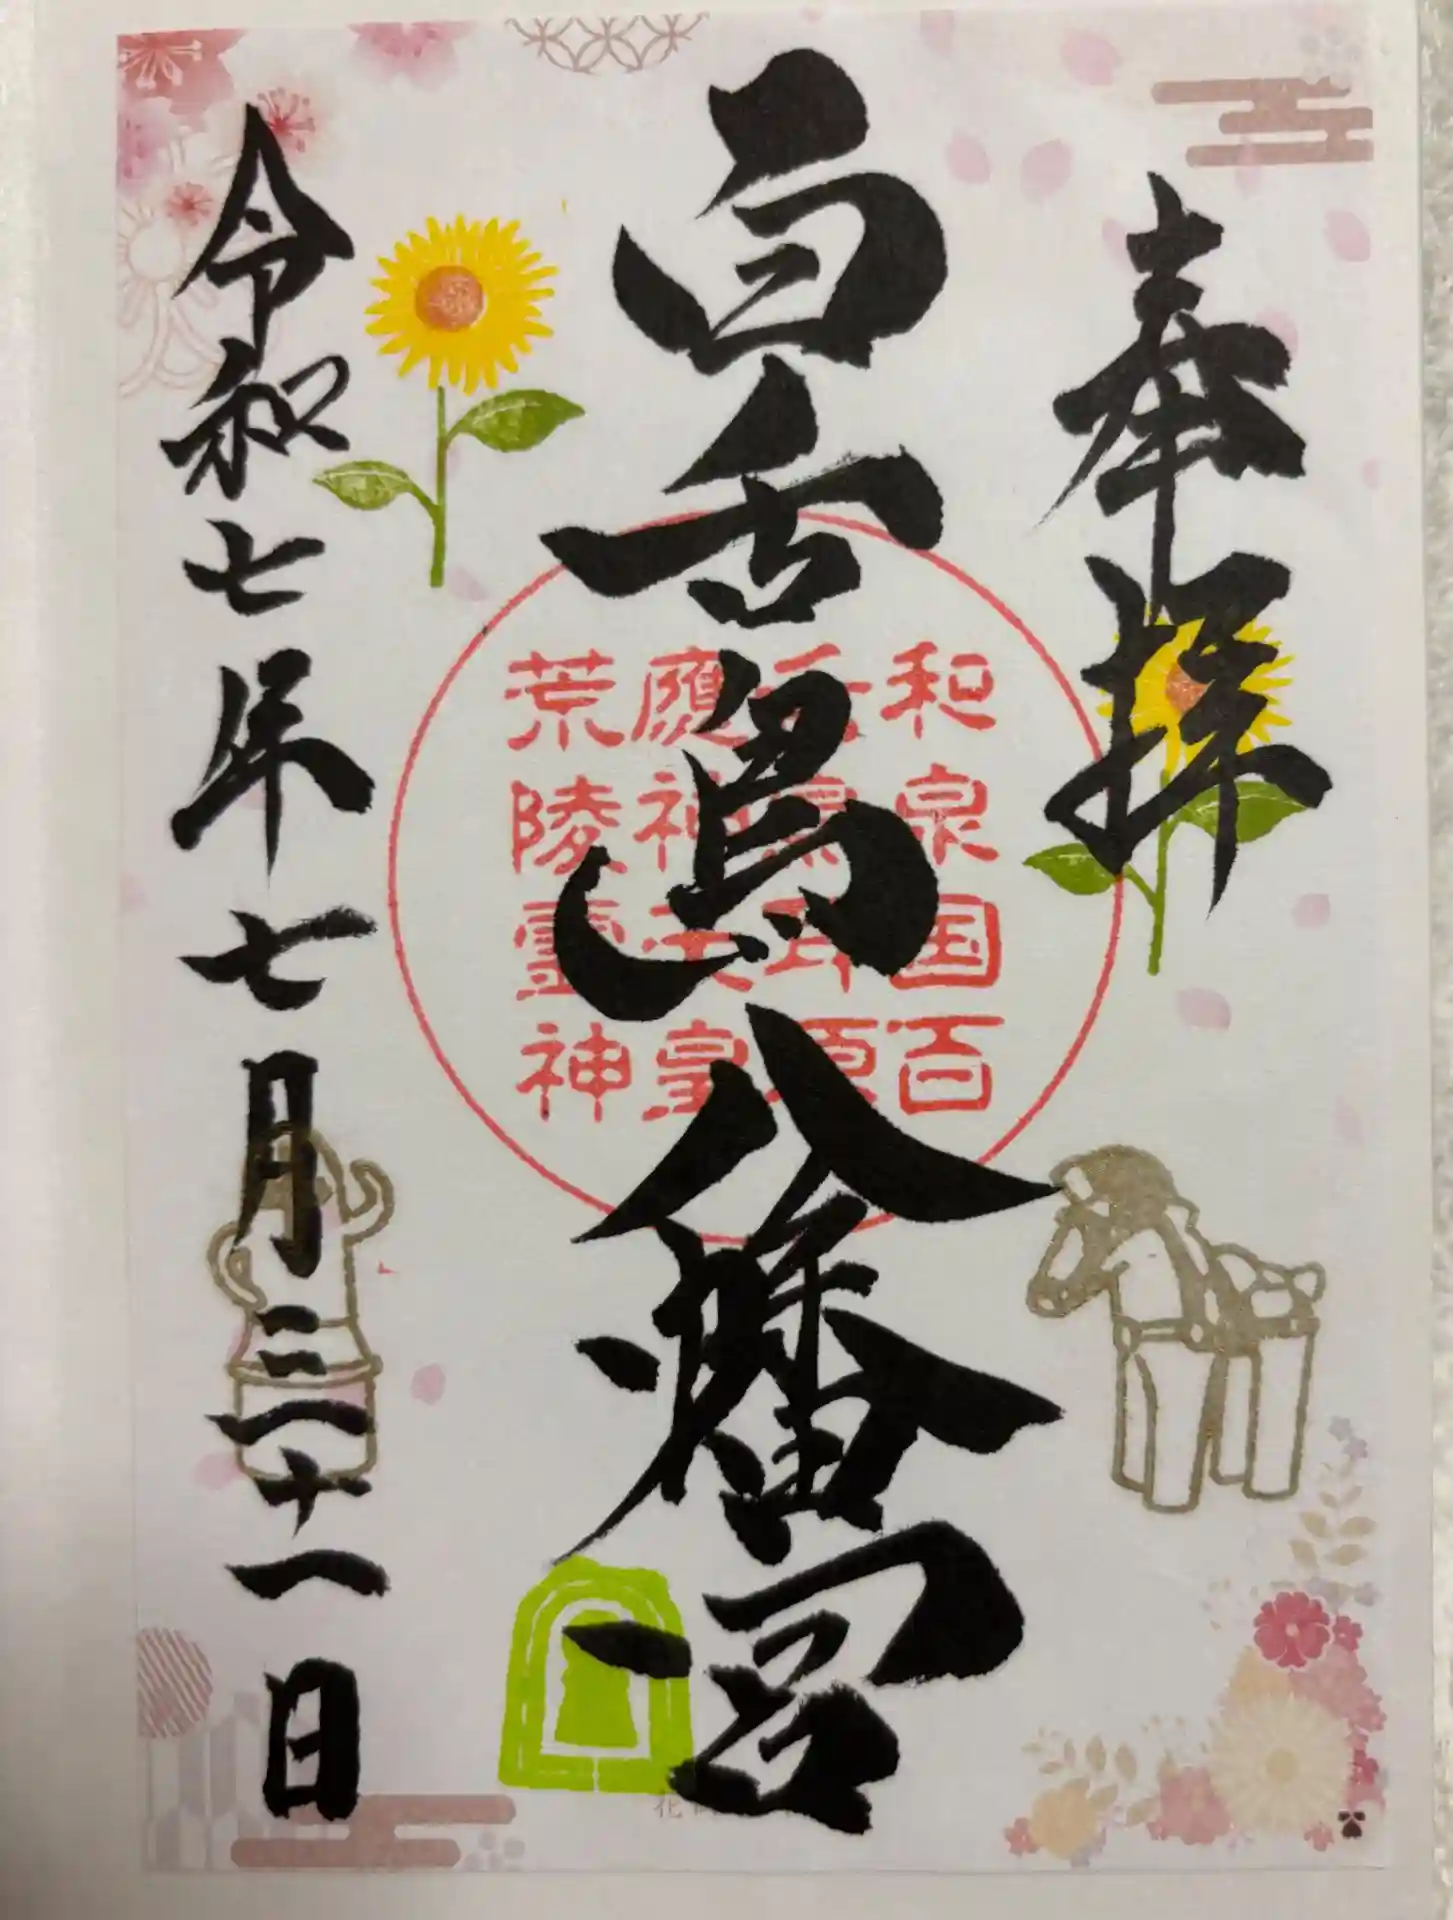 奉拝
百舌鳥八幡宮
令和七年七月三十一日
和泉国百
應神天皇
荒陵霊神